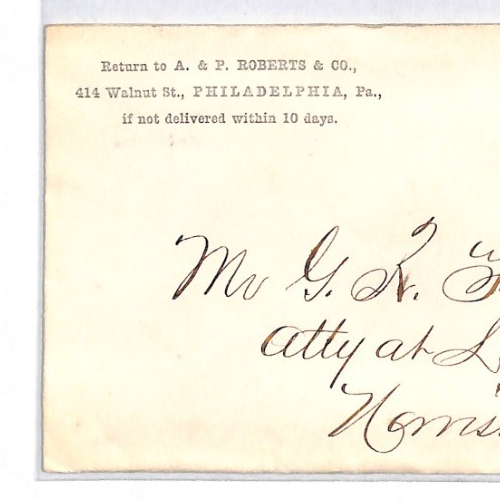 Return to A. & P. ROBERTS & CO.,
414 Walnut St., PHILADELPHIA, Pa.,
if not delivered within 10 days.
Mr G. R.
Atty at L
Norris